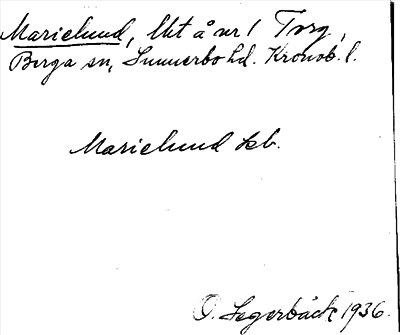 Marielund, lht å nr 1 Torg,
Berga sn, Sunnerbo hd. Kronob. l.
Marielund kb.
O. Segerbäck 1936.